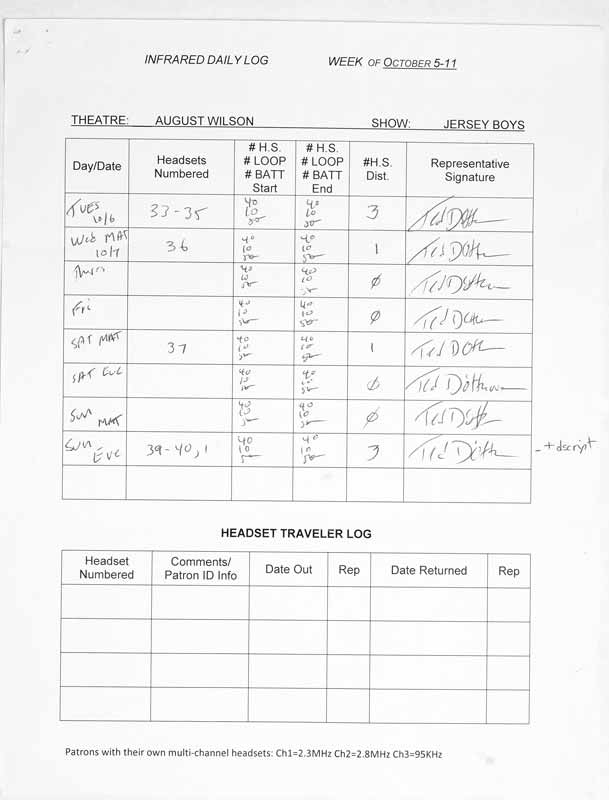 INFRARED DAILY LOG WEEK OF OCTOBER 5-11
THEATRE: AUGUST WILSON SHOW: JERSEY BOYS
Day/Date Headsets Numbered # H.S. # LOOP # BATT Start # H.S. # LOOP # BATT End #H.S. Dist. Representative Signature
TUES 10/6 33-35 40 10 50 40 10 50 3 Ted
Wed MAT 10/7 36 40 10 50 40 10 50 1 Ted
Thurs 40 10 50 40 10 50 Ø Ted
Fri 40 10 50 40 10 50 Ø Ted
SAT MAT 37 40 10 50 40 10 50 1 Ted
SAT EVE 40 10 50 40 10 50 Ø Ted
SUN MAT 40 10 50 40 10 50 Ø Ted
SUN EVE 39-40, 1 40 10 50 40 10 50 3 Ted - + dscript
HEADSET TRAVELER LOG
Headset Numbered Comments/ Patron ID Info Date Out Rep Date Returned Rep
Patrons with their own multi-channel headsets: Ch1=2.3MHz Ch2=2.8MHz Ch3=95KHz